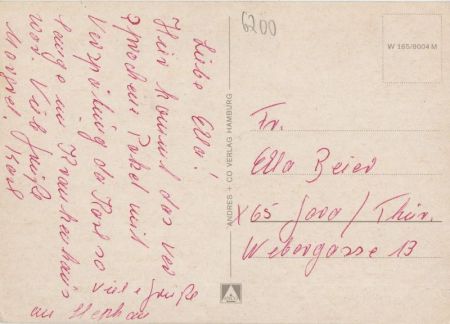 Liebe Ella!
Hier kommt das ver
sprochene Paket mit
Verspätung da Karl so
lange im Krankenhaus
war. Viele Grüße
Margret. Karl
viele Grüße
an Stephan
6200
W 165/9004 M
ANDRES + CO VERLAG HAMBURG
Fr.
Ella Beier
X 65 Gera / Thür.
Webergasse 13